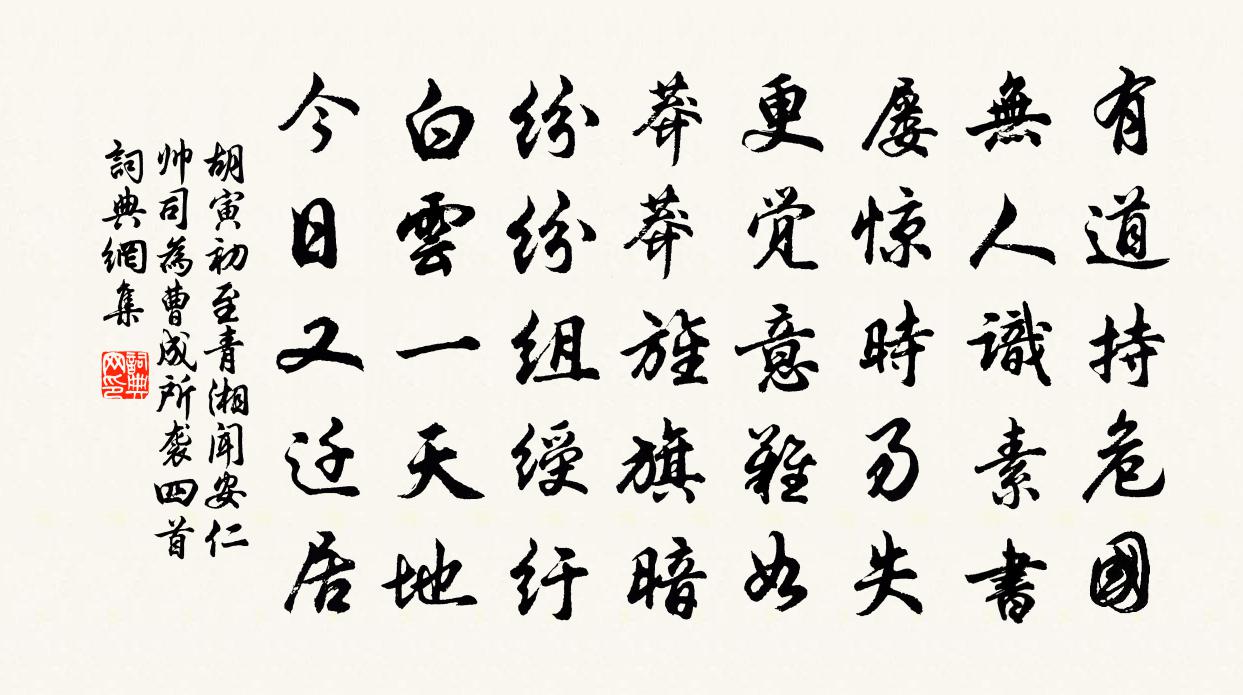 有道持危國
無人識素書
屡惊時易失
更觉意難如
莽莽旌旗暗
紛紛組綬紆
白雲一天地
今日又迁居
胡寅初至青湘聞安仁
帅司為曹成所袭四首
詞典網集
詞典网印